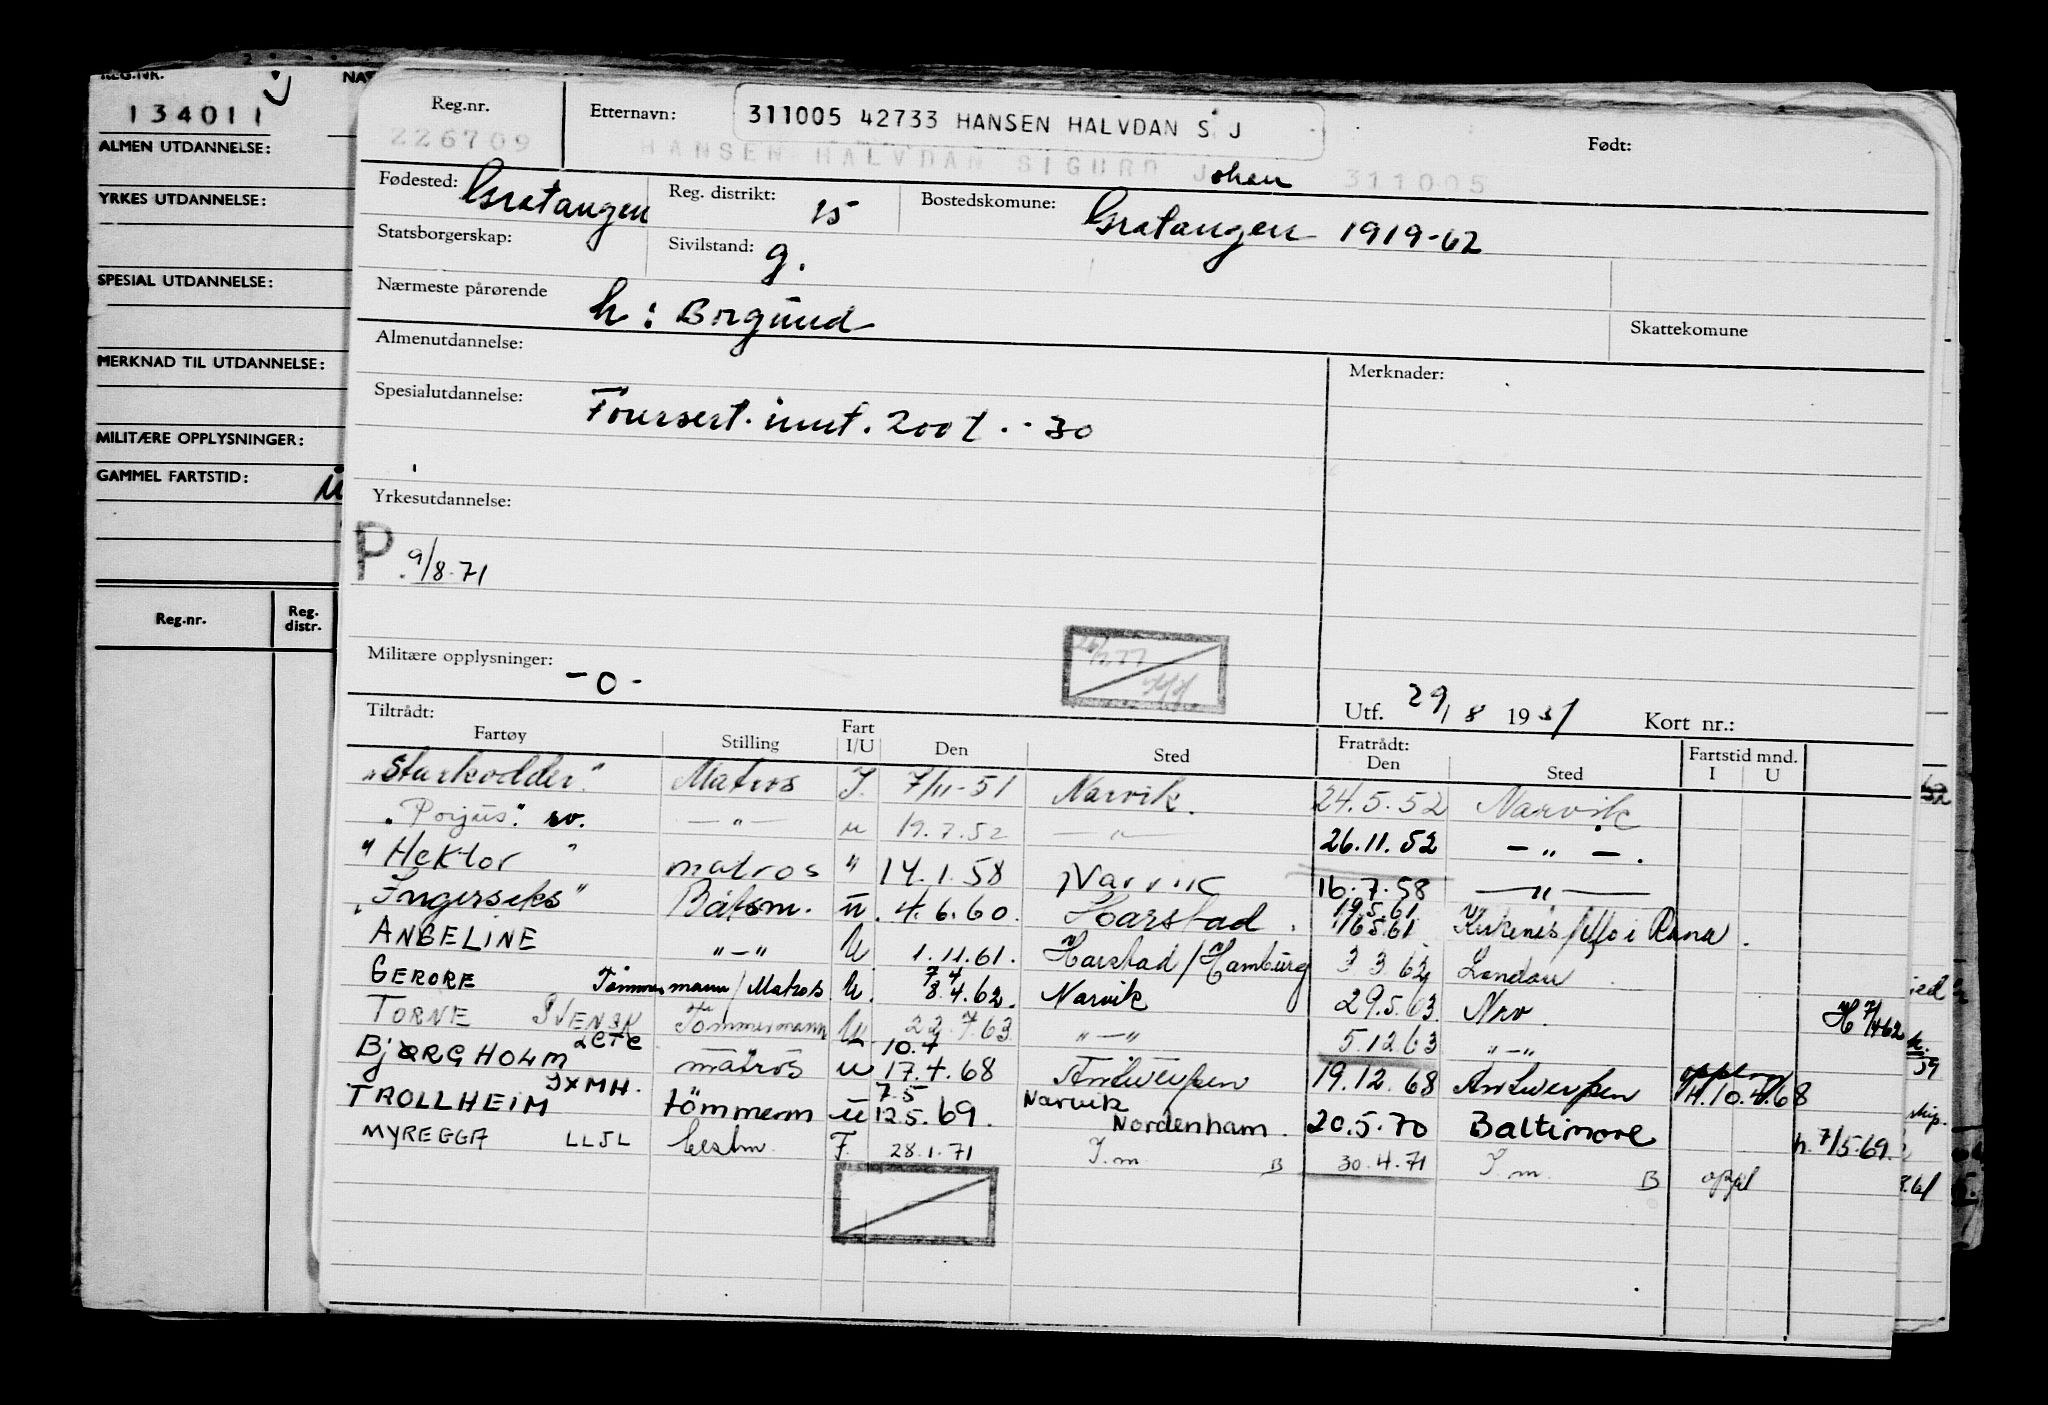 REG.NR.
134011
ALMEN UTDANNELSE:
YRKES UTDANNELSE:
SPESIAL UTDANNELSE:
MERKNAD TIL UTDANNELSE:
MILITÆRE OPPLYSNINGER:
GAMMEL FARTSTID:
Reg.nr. Reg. distr.
Reg.nr. Etternavn: 311005 42733 HANSEN HALVDAN S J Født:
226709 HANSEN HALVDAN SIGURD Johan 311005
Fødested: Gratangen Reg. distrikt: 15 Bostedskomune: Gratangen 1919-62
Statsborgerskap: Sivilstand: g.
Nærmeste pårørende h: Borgund Skattekomune
Almenutdannelse: Merknader:
Spesialutdannelse: Foursert. inut. 200 t. -30
Yrkesutdannelse:
P 9/8-71
Militære opplysninger: -0-
Utf. 29/8 1951 Kort nr.:
Tiltrådt: Fartøy Stilling Fart I/U Den Sted Fratrådt: Den Sted Fartstid mnd. I U
"Starkodder" Matros I. 7/11-51 Narvik. 24.5.52 Narvik
"Porjus" sv. — " — u 19.7.52 — " — 26.11.52 — " —.
"Hektor" matros " 14.1.58 Narvik 16.7.58 — " —
"Ingerseks" Båtsm. u. 4.6.60. Harstad. 19.5.61 16.5.61 Kirkenes/Mo i Rana.
ANGELINE " — " U 1.11.61. Harstad/Hamburg 3 3 62 London
GERORE Tømmermann/Matros U. 7 4 8.4.62. Narvik 29.5.63. Nrv. H 7/4 62
TORNE SVENSK Tømmermann U 22.7.63 " — " 5.12.63 " — "
BJØRGHOLM LCTC matros u 10.4 17.4.68 Antwerpen 19.12.68 Antwerpen
TROLLHEIM JXMH. tömmerm u 7.5 12.5.69. Narvik Nordenham. 20.5.70 Baltimore h. 7/5.69.
MYREGGA LLJL bestm. F. 28.1.71 I.m B 30.4.71 I.m. B